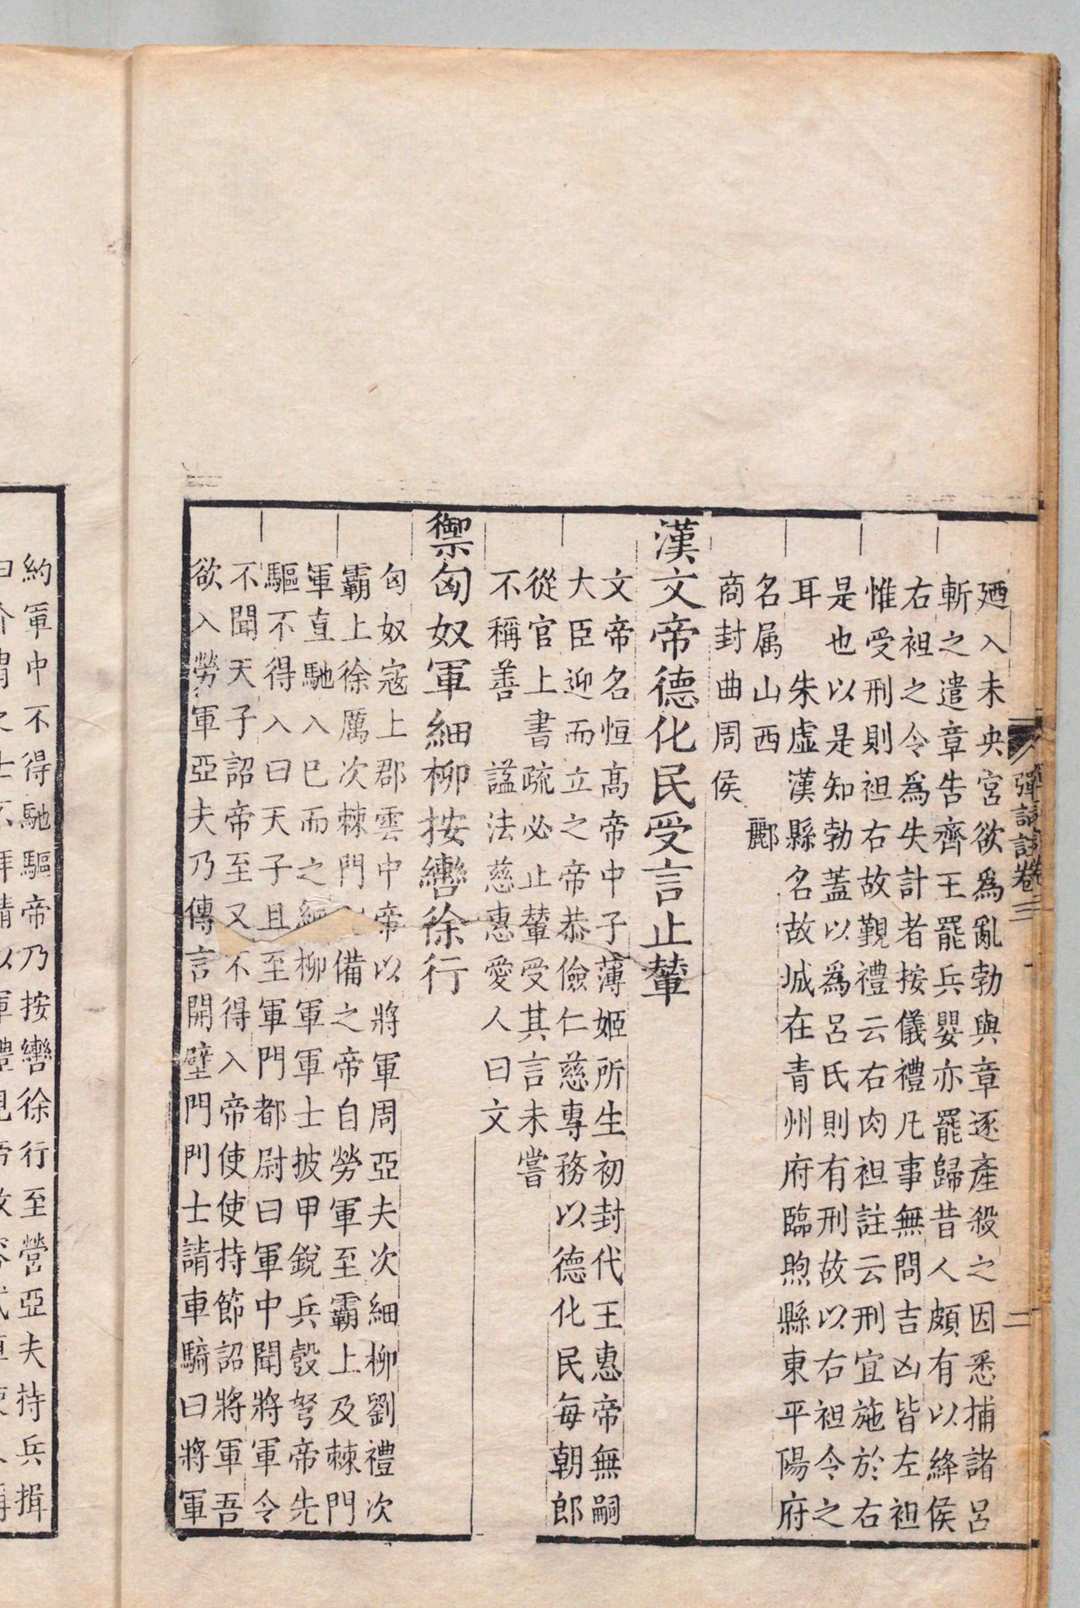 廼入未央宮欲爲亂勃與章逐產殺之因悉捕諸呂
斬之遣章告齊王罷兵嬰亦罷歸昔人頗有以絳侯
右袒之令爲失計者按儀禮凡事無問吉凶皆左袒
惟受刑則袒右故覲禮云右肉袒註云刑宜施於右
是也以是知勃蓋以爲呂氏則有刑故以右袒令之
耳　朱虛漢縣名故城在青州府臨煦縣東平陽府
名属山西　酈
商封曲周侯
漢文帝德化民受言止輦
文帝名恒高帝中子薄姬所生初封代王惠帝無嗣
大臣迎而立之帝恭儉仁慈專務以德化民每朝郎
從官上書疏必止輦受其言未嘗
不稱善　謚法慈惠愛人曰文
禦匈奴軍細柳按轡徐行
匈奴寇上郡雲中帝以將軍周亞夫次細柳劉禮次
霸上徐厲次棘門備之帝自勞軍至霸上及棘門
軍直馳入已而之細柳軍軍士披甲銳兵彀弩帝先
驅不得入曰天子且至軍門都尉曰軍中聞將軍令
不聞天子詔帝至又不得入帝使使持節詔將軍吾
欲入勞軍亞夫乃傳言開壁門門士請車騎曰將軍
約軍中不得馳驅帝乃按轡徐行至營亞夫持兵揖
彈詞註卷三
二